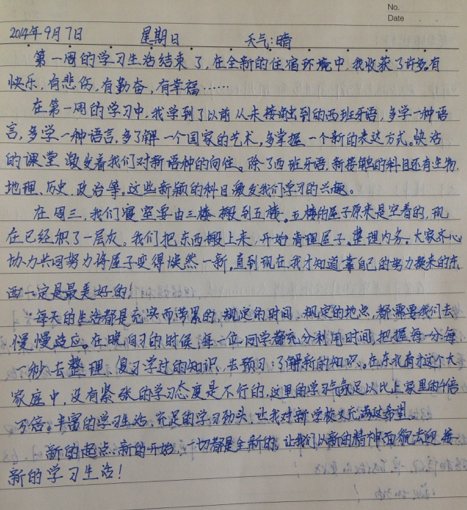 No.
Date
2014年9月7日 星期日 天气:晴
第一周的学习生活结束了,在全新的住宿环境中,我收获了许多有
快乐,有悲伤,有勤奋,有幸福……
在第一周的学习中,我学到了以前从未接触到的西班牙语,多学一种语
言,多学一种语言,多了解一个国家的艺术,多掌握一个新的表达方式。快活
的课堂激发着我们对新语种的向往。除了西班牙语,新接触的科目还有生物,
地理,历史,政治等,这些新颖的科目激发我们学习的兴趣。
在周三,我们寝室要由三楼搬到五楼。五楼的屋子原来是空着的,现
在已经积了一层灰。我们把东西搬上来,开始清理屋子,整理内务,大家齐心
协力共同努力将屋子变得焕然一新,直到现在我才知道靠自己的努力换来的东
西一定是最美好的!
每天的生活都是充实而满累的,规定的时间,规定的地点,都需要我们去
慢慢适应。在晚自习的时候,每一位同学都充分利用时间,把握每一分每
一秒去整理,复习学过的知识,去预习,了解新的知识。在东北育才这个大
家庭中,没有紧张的学习态度是不行的,这里的学习气氛足以比上家里的千倍
万倍。丰富的学习生活,充足的学习劲头,让我对新学校又充满过希望
新的起点,新的开始,一切都是全新的。让我们以新的精神面貌去迎接
新的学习生活!